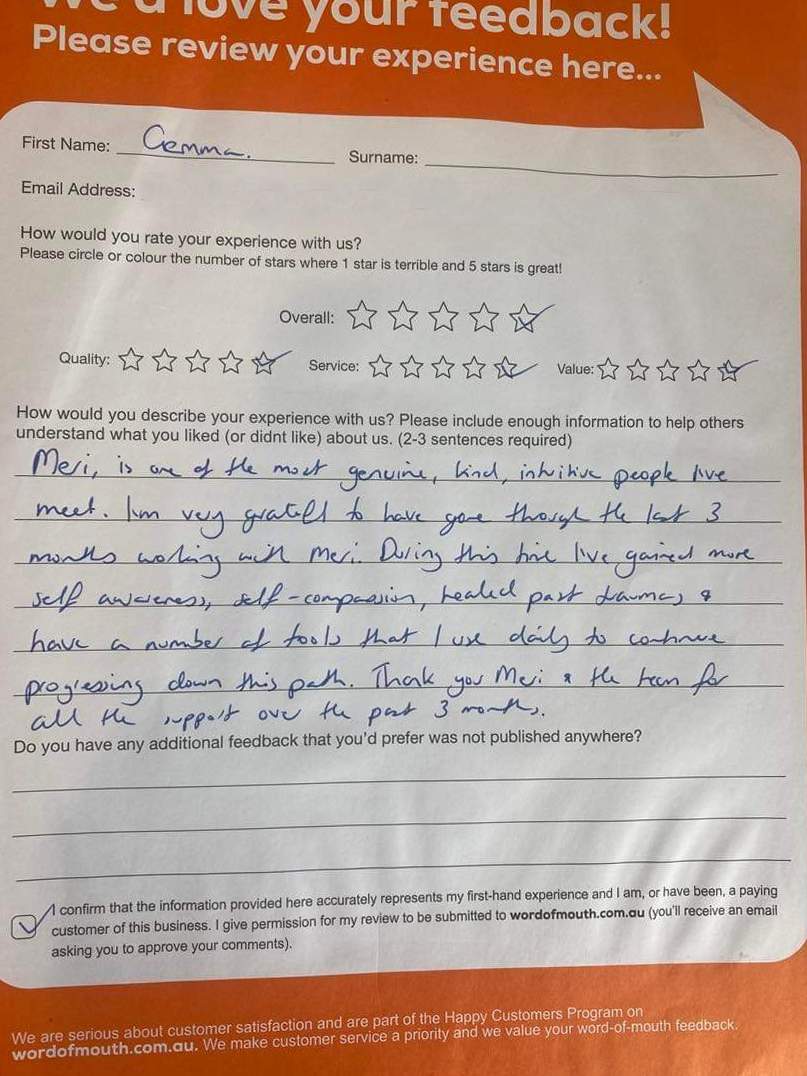 We'd love your feedback!
Please review your experience here...
First Name: Gemma.
Surname:
Email Address:
How would you rate your experience with us?
Please circle or colour the number of stars where 1 star is terrible and 5 stars is great!
Overall:
Quality: Service: Value:
How would you describe your experience with us? Please include enough information to help others
understand what you liked (or didnt like) about us. (2-3 sentences required)
Meri, is one of the most genuine, kind, intuitive people I've
meet. I'm very gratefl to have gone through the last 3
months working with Meri. During this time I've gained more
self awareness, self-compassion, healed past traumas &
have a number of tools that I use daily to continue
progressing down this path. Thank you Meri & the team for
all the support over the past 3 months.
Do you have any additional feedback that you'd prefer was not published anywhere?
I confirm that the information provided here accurately represents my first-hand experience and I am, or have been, a paying
customer of this business. I give permission for my review to be submitted to wordofmouth.com.au (you'll receive an email
asking you to approve your comments).
We are serious about customer satisfaction and are part of the Happy Customers Program on
wordofmouth.com.au. We make customer service a priority and we value your word-of-mouth feedback.